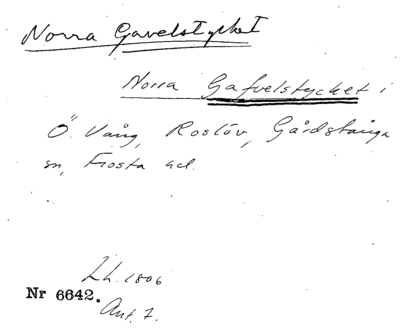 Norra Gavelstycket
Norra Gafvelstycket i
Ö. Vång, Roslöv, Gårdstånga
sn, Frosta hd.
Lh. 1806
Nr 6642.
Ant. 7.